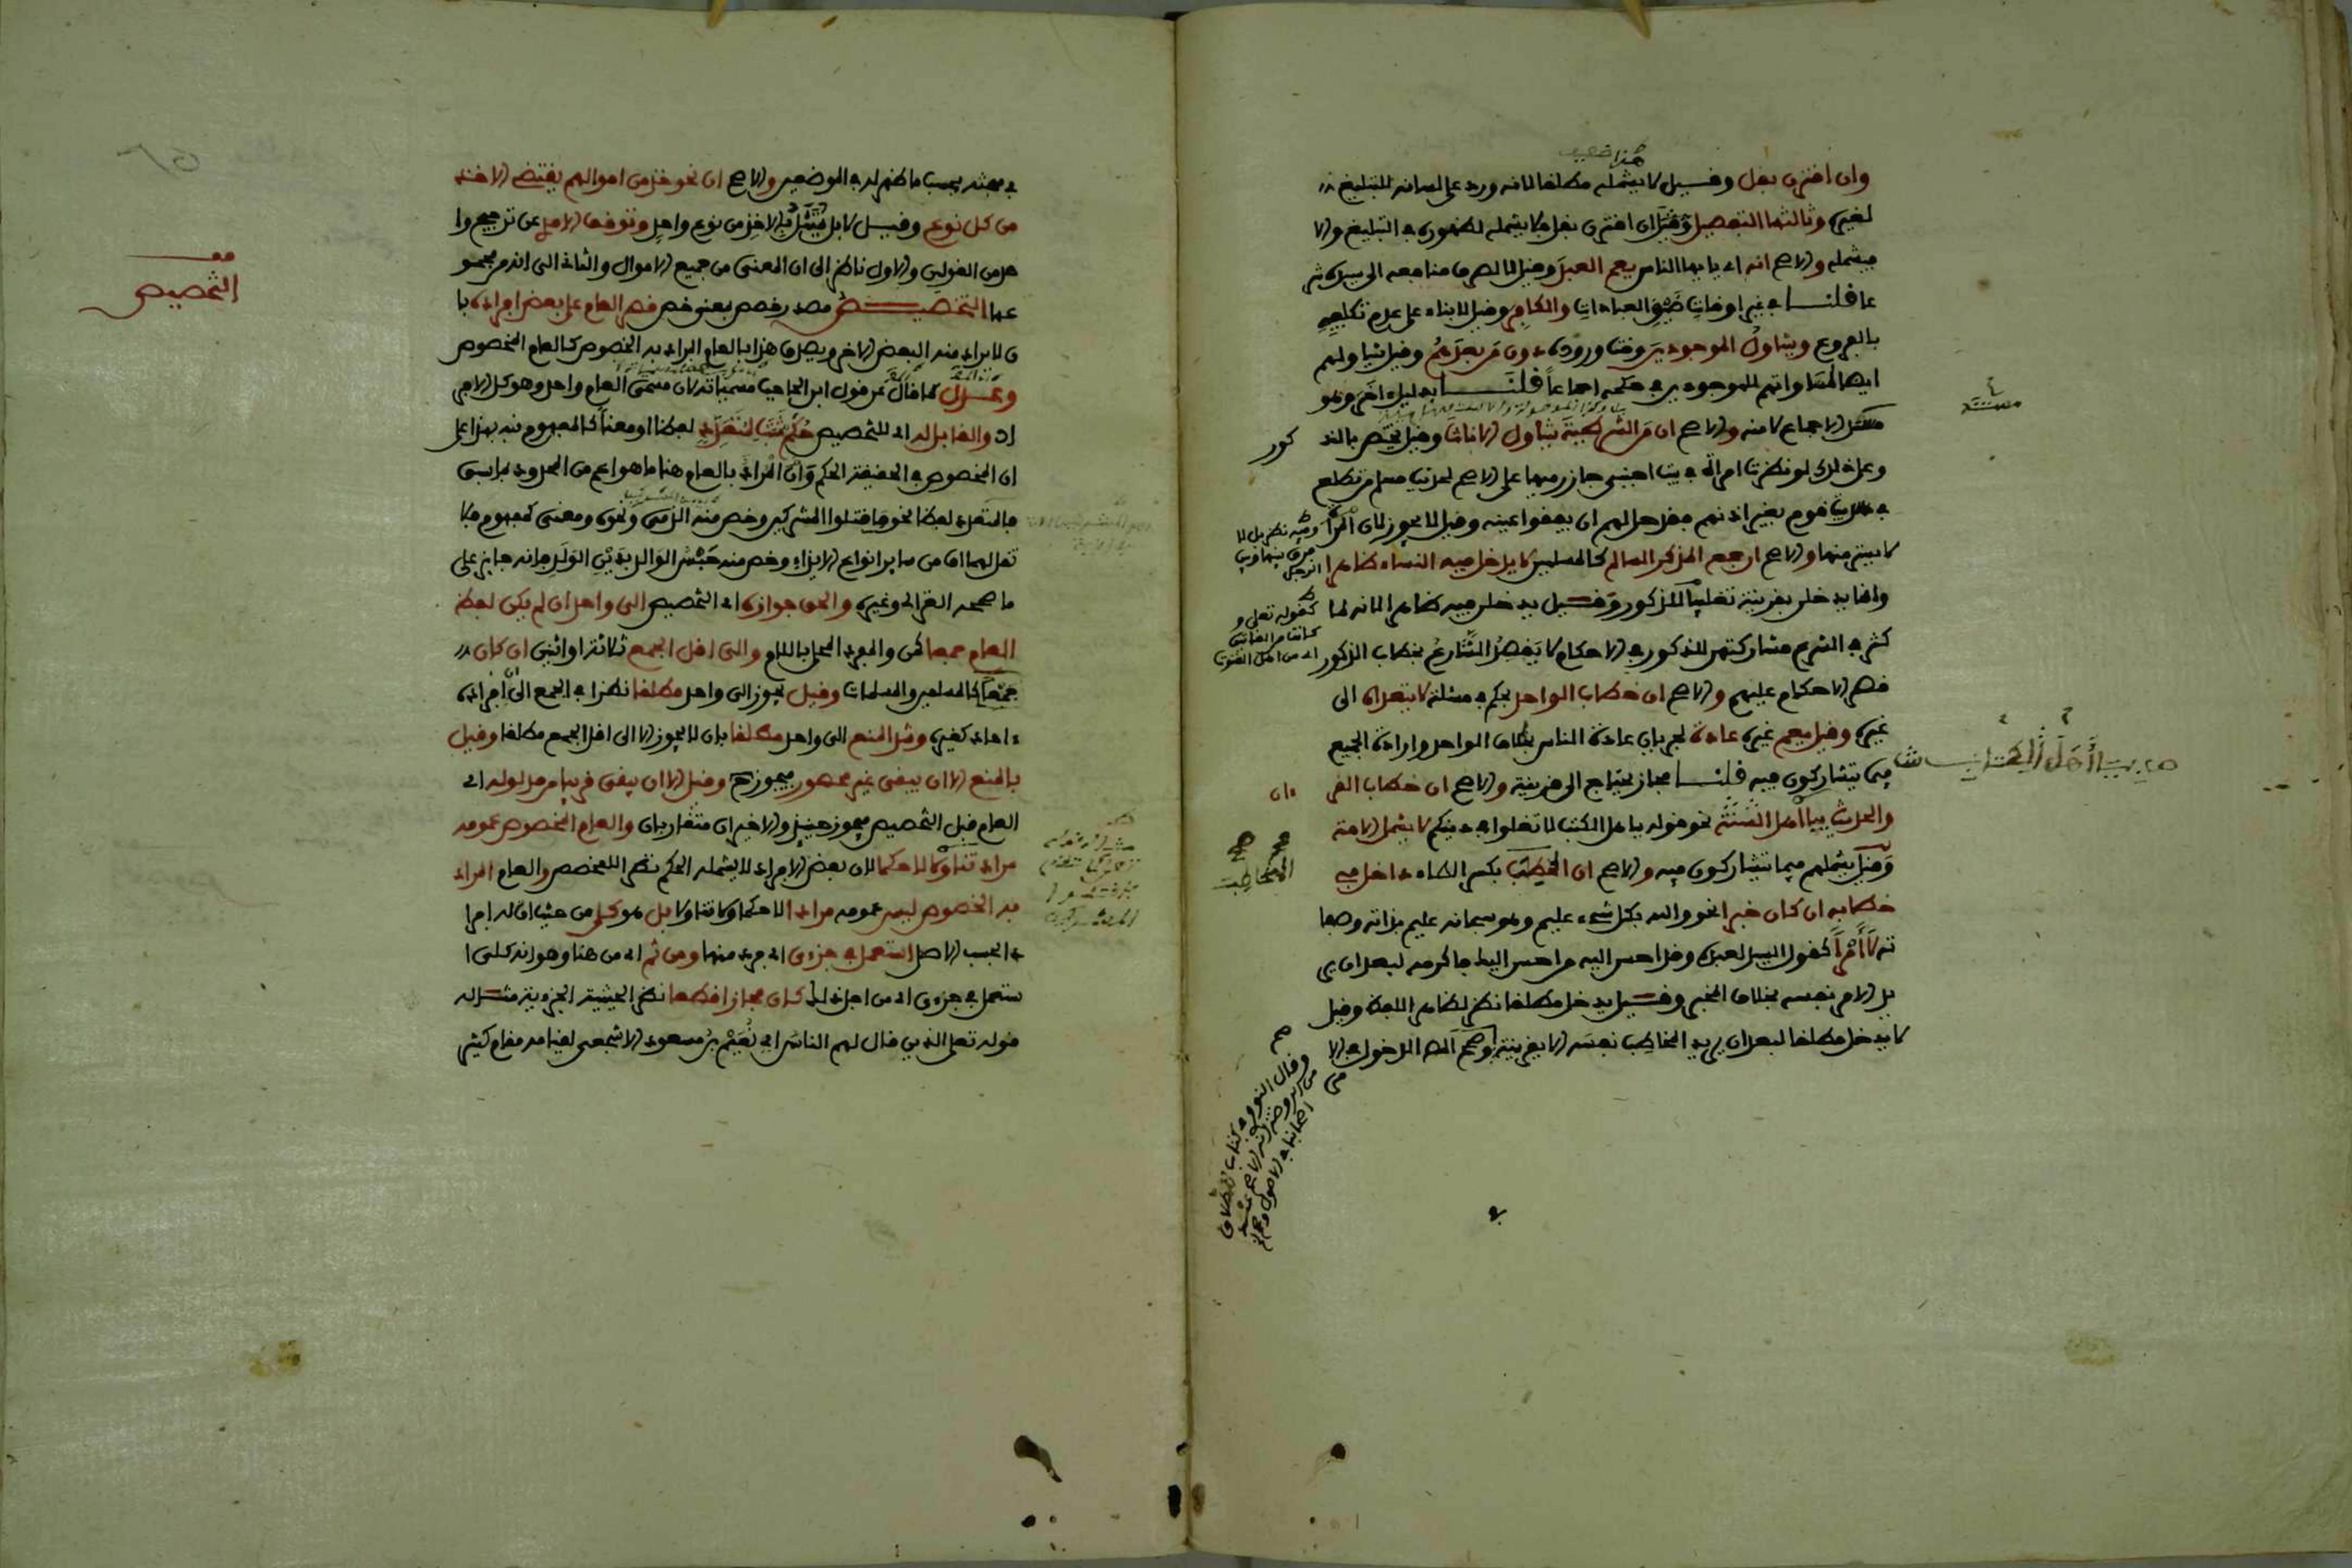 هذا ضعيف
وان اقترن بقل وقيل لا يشمله مطلقا لانه ورد على لسانه للتبليغ
لغيره وثالثها التفصيل وقيل ان اقترن بقل فلا يشمله لظهوره في التبليغ والا
فيشمله والاصح انه اي يايها الناس يعم العبد وقيل لا لصرف منافعه الى سيده شر
عا قلنا في غير اوقات ضيق العبادات والكافر وقيل لا بناء على عدم تكليفه
بالفروع ويتناول الموجودين وقت وروده دون من بعدهم وقيل يتناولهم
ايضا لمساواتهم للموجودين في حكمه اجماعا قلنا بدليل اخر وهو
مستند الاجماع لا منه والاصح ان من الشرطية تتناول الاناث وقيل تختص بالذ
كور
وعلى ذلك لو نظرت امراة في بيت اجنبي جاز رميها على الاصح لحديث مسلم من تطلع
في بيت قوم بغير اذنهم فقد حل لهم ان يفقئوا عينه وقيل لا يجوز لان المراة
لا يستتر منها والاصح ان جمع المذكر السالم كالمسلمين لا يدخل فيه النساء ظاهرا
وانما يدخلن بقرينة تغليبا للذكور وقيل يدخلن فيه ظاهرا لانه لما
كثر في الشرع مشاركتهن للذكور في الاحكام لا يقصد الشارع بخطاب الذكور
قصر الاحكام عليهم والاصح ان خطاب الواحد بحكم في مسئلة لا يتعداه الى
غيره وقيل يعم غيره عادة لجريان عادة الناس بخطاب الواحد وارادة الجميع
فيما يتشاركون فيه قلنا مجاز يحتاج الى قرينة والاصح ان خطاب القر
ءان
والحديث بيا اهل الكتاب نحو قوله يا هل الكتب لا تغلوا في دينكم لا يشمل الامة
وقيل يشملهم فيما يتشاركون فيه والاصح ان المخاطب بكسر الطاء داخل في
خطابه ان كان خبرا نحو والله بكل شيء عليم وهو سبحانه عليم بذاته وصفا
ته لا امرا كقول السيد لعبده وقد احسن اليه من احسن اليك فاكرمه لبعد ان ير
يد الامر نفسه بخلاف المخبر وقيل يدخل مطلقا نظرا لظاهر اللفظ وقيل
لا يدخل مطلقا لبعد ان يريد المخاطب نفسه الا بقرينة وصحح المص الدخول في الا
مر
مستند
المخاطب
وقال النووي في كتاب الطلاق
من الروضة انه الاصح عند
اصحابنا في الاصول وصح
في مبحثه بحسب ما ظهر له في الموضعين والاصح ان نحو خذ من اموالهم يقتضي الاخذ
من كل نوع وقيل لا بل يمتثل بالاخذ من نوع واحد وتوقف الامدي عن ترجيح وا
حد من القولين والاول ناظر الى ان المعنى من جميع الاموال والثاني الى انه من مجمو
عها التخصيص مصدر خصص بمعنى خص قصر العام على بعض افراده با
ن لا يراد منه البعض الاخر ويصدق هذا بالعام المراد به الخصوص كالعام المخصوص
وعدل كما قال عن قول ابن الحاجب مسمياته لان مسمى العام واحد وهو كل الافر
اد والقابل له اي للتخصيص حكم ثبت لمتعدد لفظا او معنا كالمفهوم نبه بهذا على
ان المخصوص في الحقيقة الحكم وان المراد بالعام هنا ما هو اعم من المحدود بما سبق
فالمتعدد لفظا نحو فاقتلوا المشركين وخص منه الذمي ونحوه ومعنى كمفهوم فلا
تقل لهما اف من ساير انواع الايذاء وخص منه حبس الوالد بدين الولد فانه جايز على
ما صححه الغزالي وغيره والحق جوازه اي التخصيص الى واحد ان لم يكن لفظ
العام جمعا كمن والمفرد المحلى باللام والى اقل الجمع ثلاثة او اثنين ان كان
جمعا كالمسلمين والمسلمات وقيل يجوز الى واحد مطلقا نظرا في الجمع الى ان افراده
ءاحاد كغيره وشذ المنع الى واحد مطلقا بان لا يجوز الا الى اقل الجمع مطلقا وقيل
بالمنع الا ان يبقى غير محصور فيجوز ح وقيل الا ان يبقى قريبا من مدلوله اي
العام قبل التخصيص فيجوز حينيذ والاخيران متقاربان والعام المخصوص عمومه
مراد تناولا لا حكما لان بعض الافراد لا يشمله الحكم نظرا للمخصص والعام المراد
به الخصوص ليس عمومه مرادا لا حكما ولا تناولا بل هو كلي من حيث ان له افرا
دا بحسب الاصل استعمل في جزءي اي فرد منها ومن ثم اي من هنا وهو انه كلي ا
ستعمل في جزءي اي من اجل ذلك كان مجازا قطعا نظرا لحيثية الجزءية مثاله
قوله تعلى الذين قال لهم الناس اي نعيم بن مسعود الاشجعي لقيامه مقام كثير
قف
التخصيص